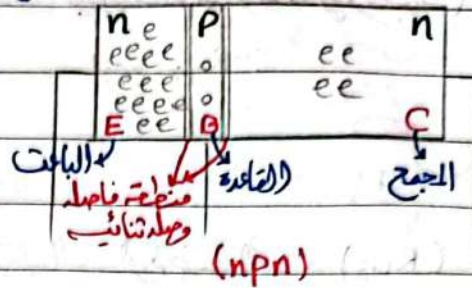 n e P n
e e e e o e e
e e e o e e
e e e e
E e e B C
الباعث القاعدة المجمع
منطقة فاصلة
وصلة ثنائية
(npn)